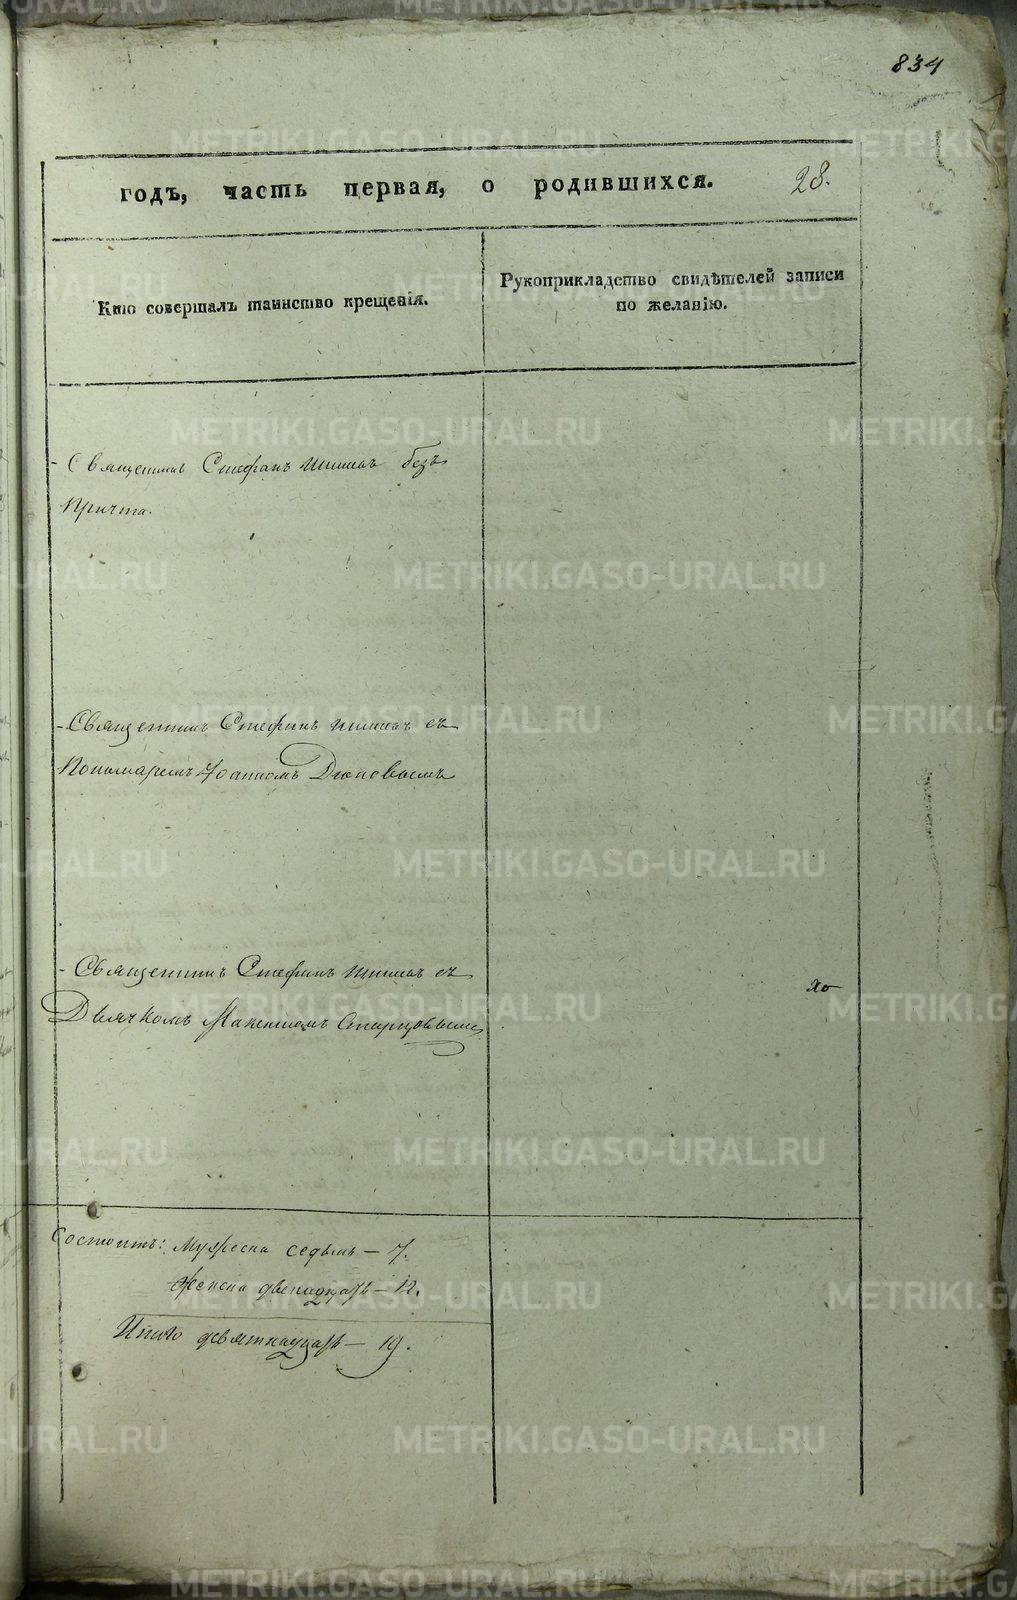 834
годъ, часть первая, о родившихся. 28.
Кто совершалъ таинство крещенія.
Рукоприкладство свидѣтелей записи
по желанію.
- Священникъ Стефанъ безъ
Причта.
- Священникъ Стефанъ съ
Пономаремъ Іоанномъ
- Священникъ Стефанъ съ
Дьячкомъ Старцовымъ
Состоитъ: Мужеска седмь — 7.
Женска двенадцать — 12.
Итого девятнадцать — 19.
METRIKI.GASO-URAL.RU